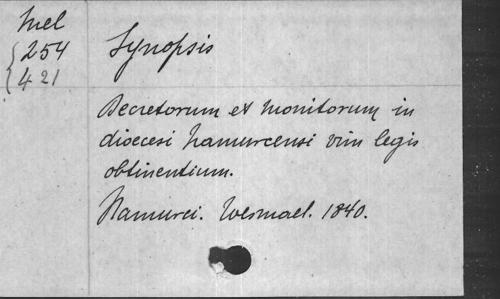 Mel
254
421
Synopsis
Decretorum et monitorum in
dioecesi Namurcensi vim legis
obtinentium.
Namurci. Wesmael. 1840.